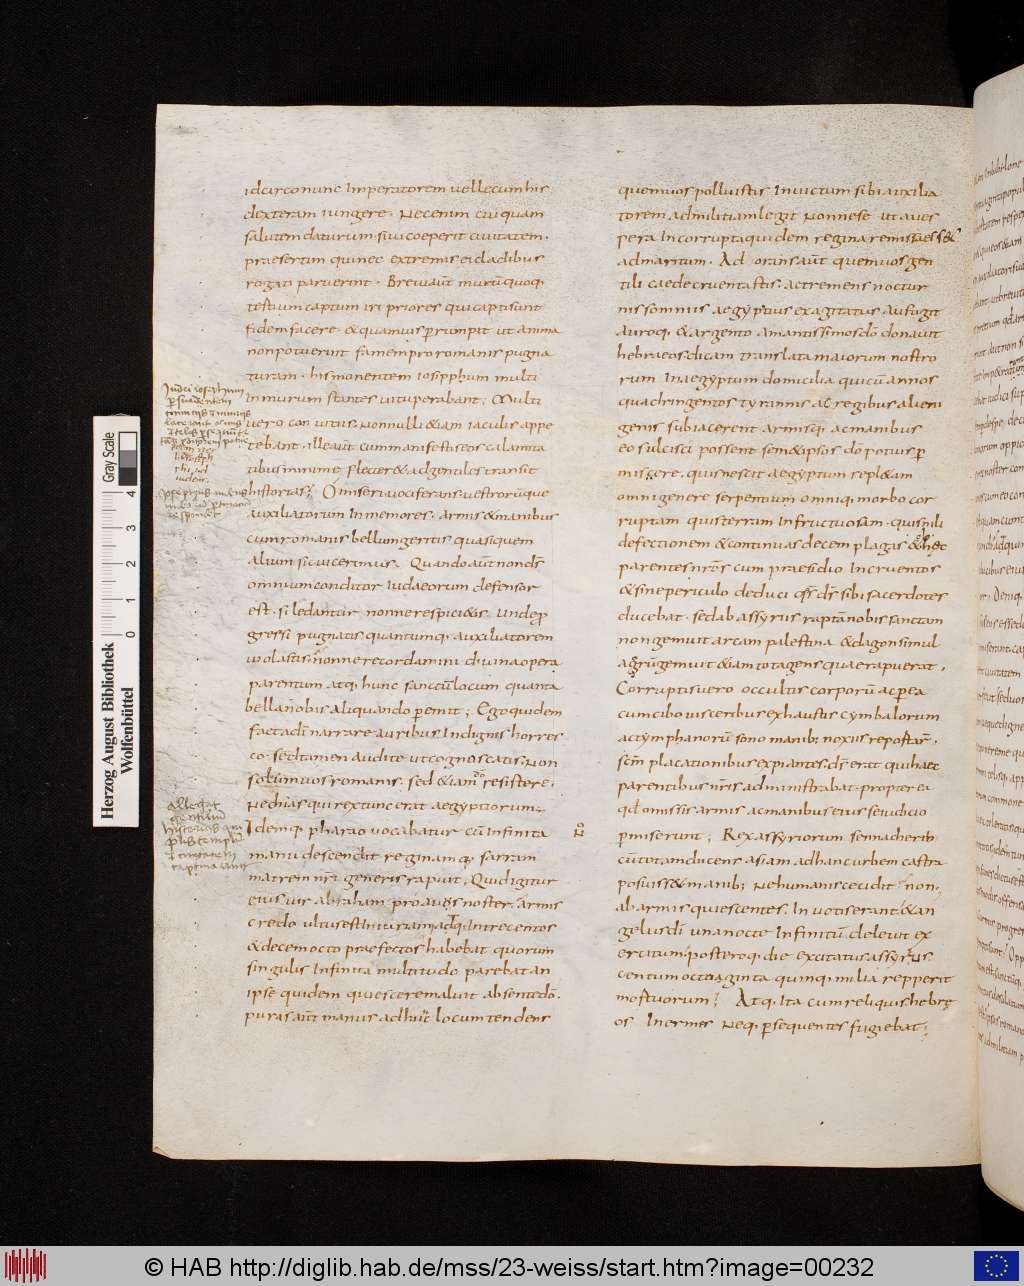 idcirco nunc Imperatorem uelle cum his
dexteram iungere. Nec enim cuiquam
salutem daturum. si ui coeperit ciuitatem.
praesertim qui nec extremis eicladibus
rogati paruerint. Breuiaut̄ murū quoq;
tertium captum iri priores qui capti sunt
fidem facere. & quamuis p̱rumpi ut anima
non potuerint famem pro romanis pugna
turam. his monentem iosipphum multi
In murum stantes uituperabant; Multi
uero conuitiis. Nonnulli &iam iaculis appe
tebant. ille aut̄ cum manifestis eos calamita
tibus minime flecter& ad gentiles transit
historias; O miseri uociferans uestrorūque
auxiliatorum Inmemores. armis & manibus
cum romanis bellum geritis quasi quem
alium sic uicerimus. Quando aut̄ non dꝭ
omnium conditor Iudaeorum defensor
est. si ledantur nonne respicietis. unde p̱
gressi pugnatis quantumq; auxiliatorem
uiolastis. nonne recordamini diuina opera
parentum atq; hunc sanctū locum quanta
bella nobis aliquando peremit; Ego quidem
facta dī narrare auribus Indignis horres
co. sed tamen audite ut cognoscatis. Non
solum uos romanis. sed &iam dō resistere.
Nechias qui rex tunc erat aegyptiorum.
Idemq; pharao uocabatur cū Infinita
manu descendit reginamq; sarram
matrem nr̄i generis rapuit; Quid igitur
eius uir abraham proauus noster. armis
credo ultus est Iniuriam. atq; In trecentos
& decem octo praefectos habebat quorum
singulis Infinita multitudo parebat. an
ipse quidem quiescere maluit absente dō.
puras aut̄ manus ad hunc locum tendens
quem uos polluistis Inuictum sibi auxilia
torem ad militiam legit Nonne se ut aues
pera Incorrupta quidem regina remissa ess&
ad maritum. Ad orans aut̄ quem uos gen
tili caede cruentastis. ac tremens noctur
nis somniis aegyptius exagitatus aufugit
auroq; & argento amantissimos dō donauit
hebraeos dicam translata maiorum nostro
rum In aegyptum domicilia qui cū annos
quadringentos tyrannis ac regibus alieni
genis subiacerent armisq; ac manibus
eo sulcisci possent sem&ipsos dō potius p̱
miscere. quis nescit aegyptum repl&am
omni genere serpentium omniq; morbo cor
ruptam quis terram Infructuosam. quis nili
defectionem & continuas decem plagas & haec
parentes nr̄os cum praesidio Incruentos
& sine periculo deduci q̄s dꝭ sibi sacerdotes
ducebat. sed ab assyriis raptā nobis sanctam
non gemuit arcam palestina & dagon simul
acrū gemuit &iam tota gens quae rapuerat.
Corruptis uero occultis corporū ac p̱ ea
cum cibo uisceribus exhaustis cymbalorum
ac tymphanorū sono manib; noxiis reportar̄.
scm̄ placationibus expiantes. dꝭ erat qui haec
parentibus nr̄is administrabat. propterea
qđ omissis armis ac manibus eius se iudicio
p̱miserunt; Rex assyriorum sennacherib
cū totam ducens asiam ad hanc urbem castra
posuiss& manib; Ne humanis cecidit; non
ab armis quiescentes. In uotis erant; & an
gelus dī una nocte Infinitū deleuit ex
ercitum; posteroq; die excitatus assyrius.
centum octoaginta quinq; milia repperit
mortuorum; Atq; Ita cum reliquis hebrę
os Inermes Neq; p̱sequentes fugiebat;
Gray Scale
Herzog August Bibliothek
Wolfenbüttel
0 1 2 3 4
© HAB http://diglib.hab.de/mss/23-weiss/start.htm?image=00232